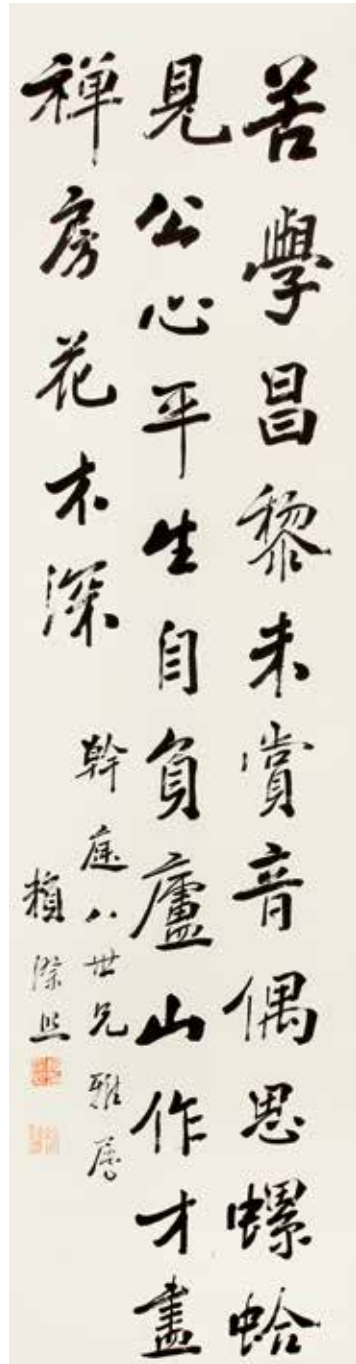 苦學昌黎未賞音偶思螺蛤
見公心平生自負廬山作才盡
禪房花木深
幹庭八世兄雅屬